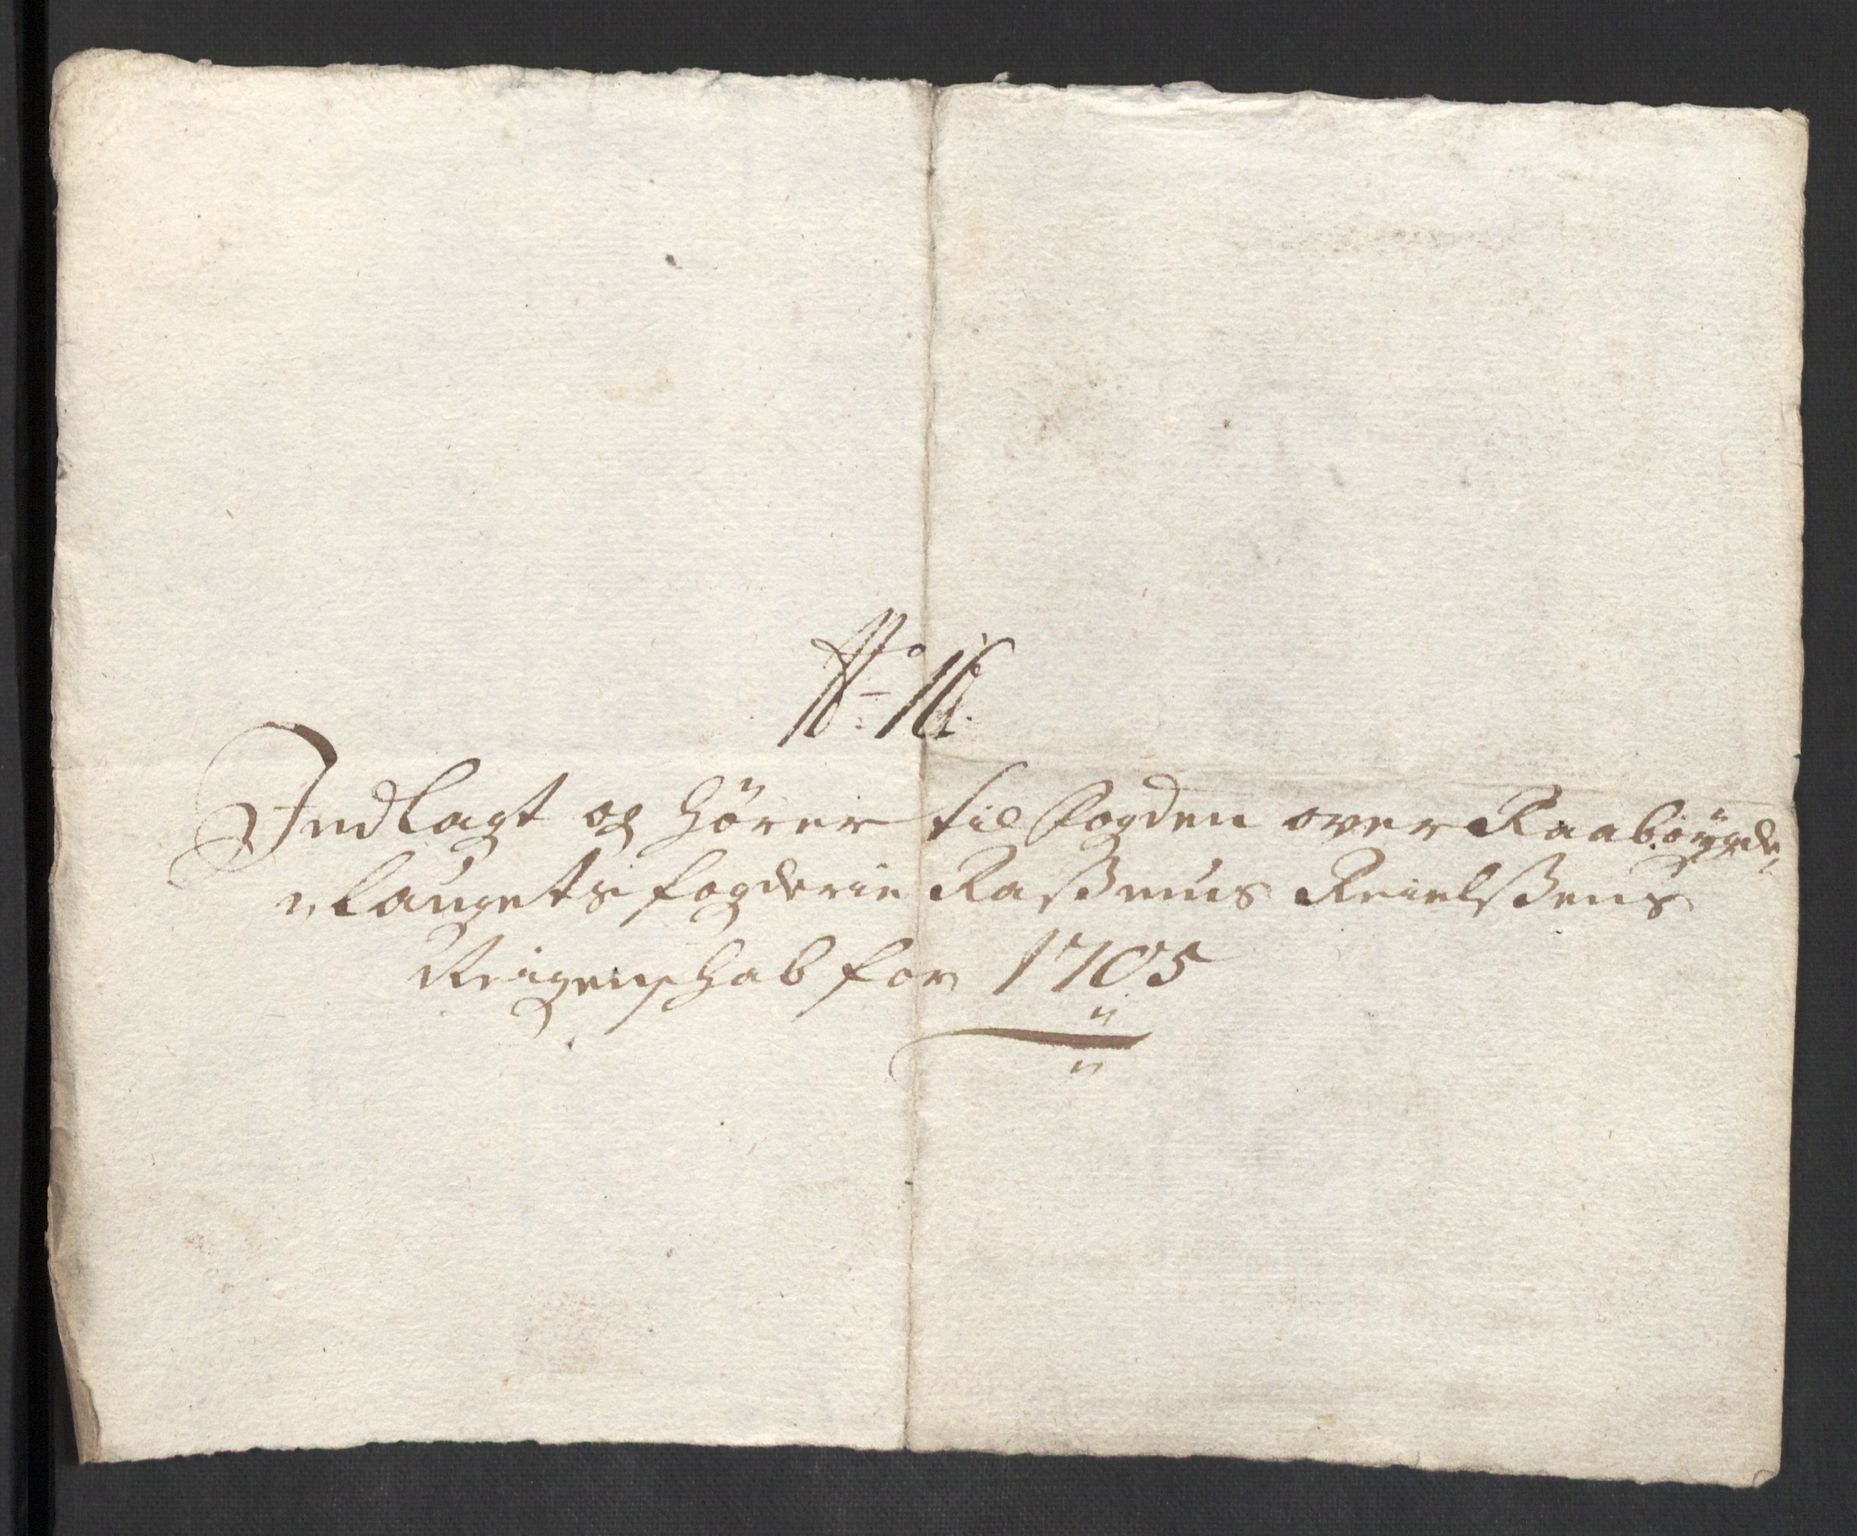 No 16.
Indlagt og hører til Fogden over Raabøÿgde„
„laugets fogderie Rasmus Reielssens
Reigenschab for 1705